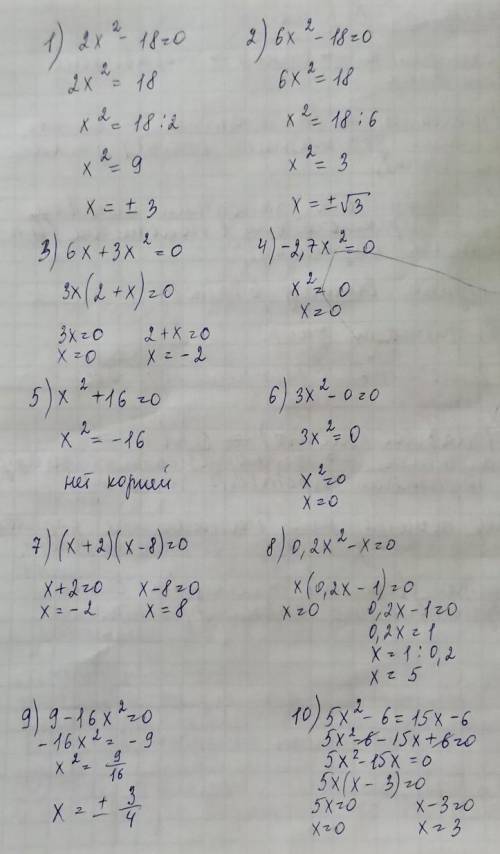 1) 2x² - 18=0
2x² = 18
x² = 18:2
x² = 9
x = ± 3
2) 6x² - 18=0
6x² = 18
x² = 18:6
x² = 3
x = ±√3
3) 6x + 3x² = 0
3x(2 + x) = 0
3x=0 2 + x = 0
x=0 x = -2
4) -2,7x² = 0
x² = 0
x = 0
5) x² + 16 = 0
x² = -16
нет корней
6) 3x² - 0 = 0
3x² = 0
x² = 0
x = 0
7) (x+2)(x-8)=0
x+2=0 x-8=0
x=-2 x=8
8) 0,2x² - x = 0
x(0,2x - 1) = 0
x=0 0,2x-1=0
0,2x = 1
x = 1:0,2
x = 5
9) 9 - 16x² = 0
-16x² = -9
x² = 9/16
x = ± 3/4
10) 5x² - 6 = 15x - 6
5x² - 6 - 15x + 6 = 0
5x² - 15x = 0
5x(x - 3) = 0
5x=0 x-3=0
x=0 x=3